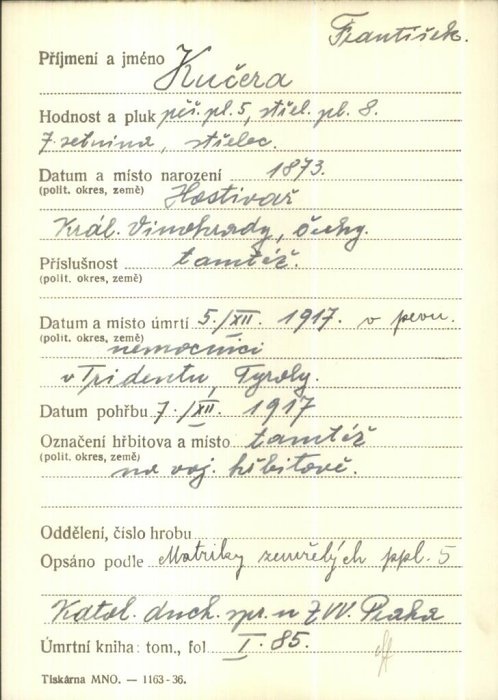 František.
Příjmení a jméno Kučera
Hodnost a pluk pěš. pl. 5, střel. pl. 8.
7. setnina, střelec.
Datum a místo narození 1873.
(polit. okres, země) Hostivař
Král. Vinohrady, Čechy.
Příslušnost tamtéž.
(polit. okres, země)
Datum a místo úmrtí 5./XII. 1917. v pevn.
(polit. okres, země) nemocnici
v Tridentu, Tyroly.
Datum pohřbu 7./XII. 1917
Označení hřbitova a místo tamtéž
(polit. okres, země) na voj. hřbitově.
Oddělení, číslo hrobu
Opsáno podle Matriky zemřelých ppl. 5
Katol. duch. spr. u ZVV. Praha
Úmrtní kniha: tom., fol. I. 85.
Tiskárna MNO. — 1163-36.